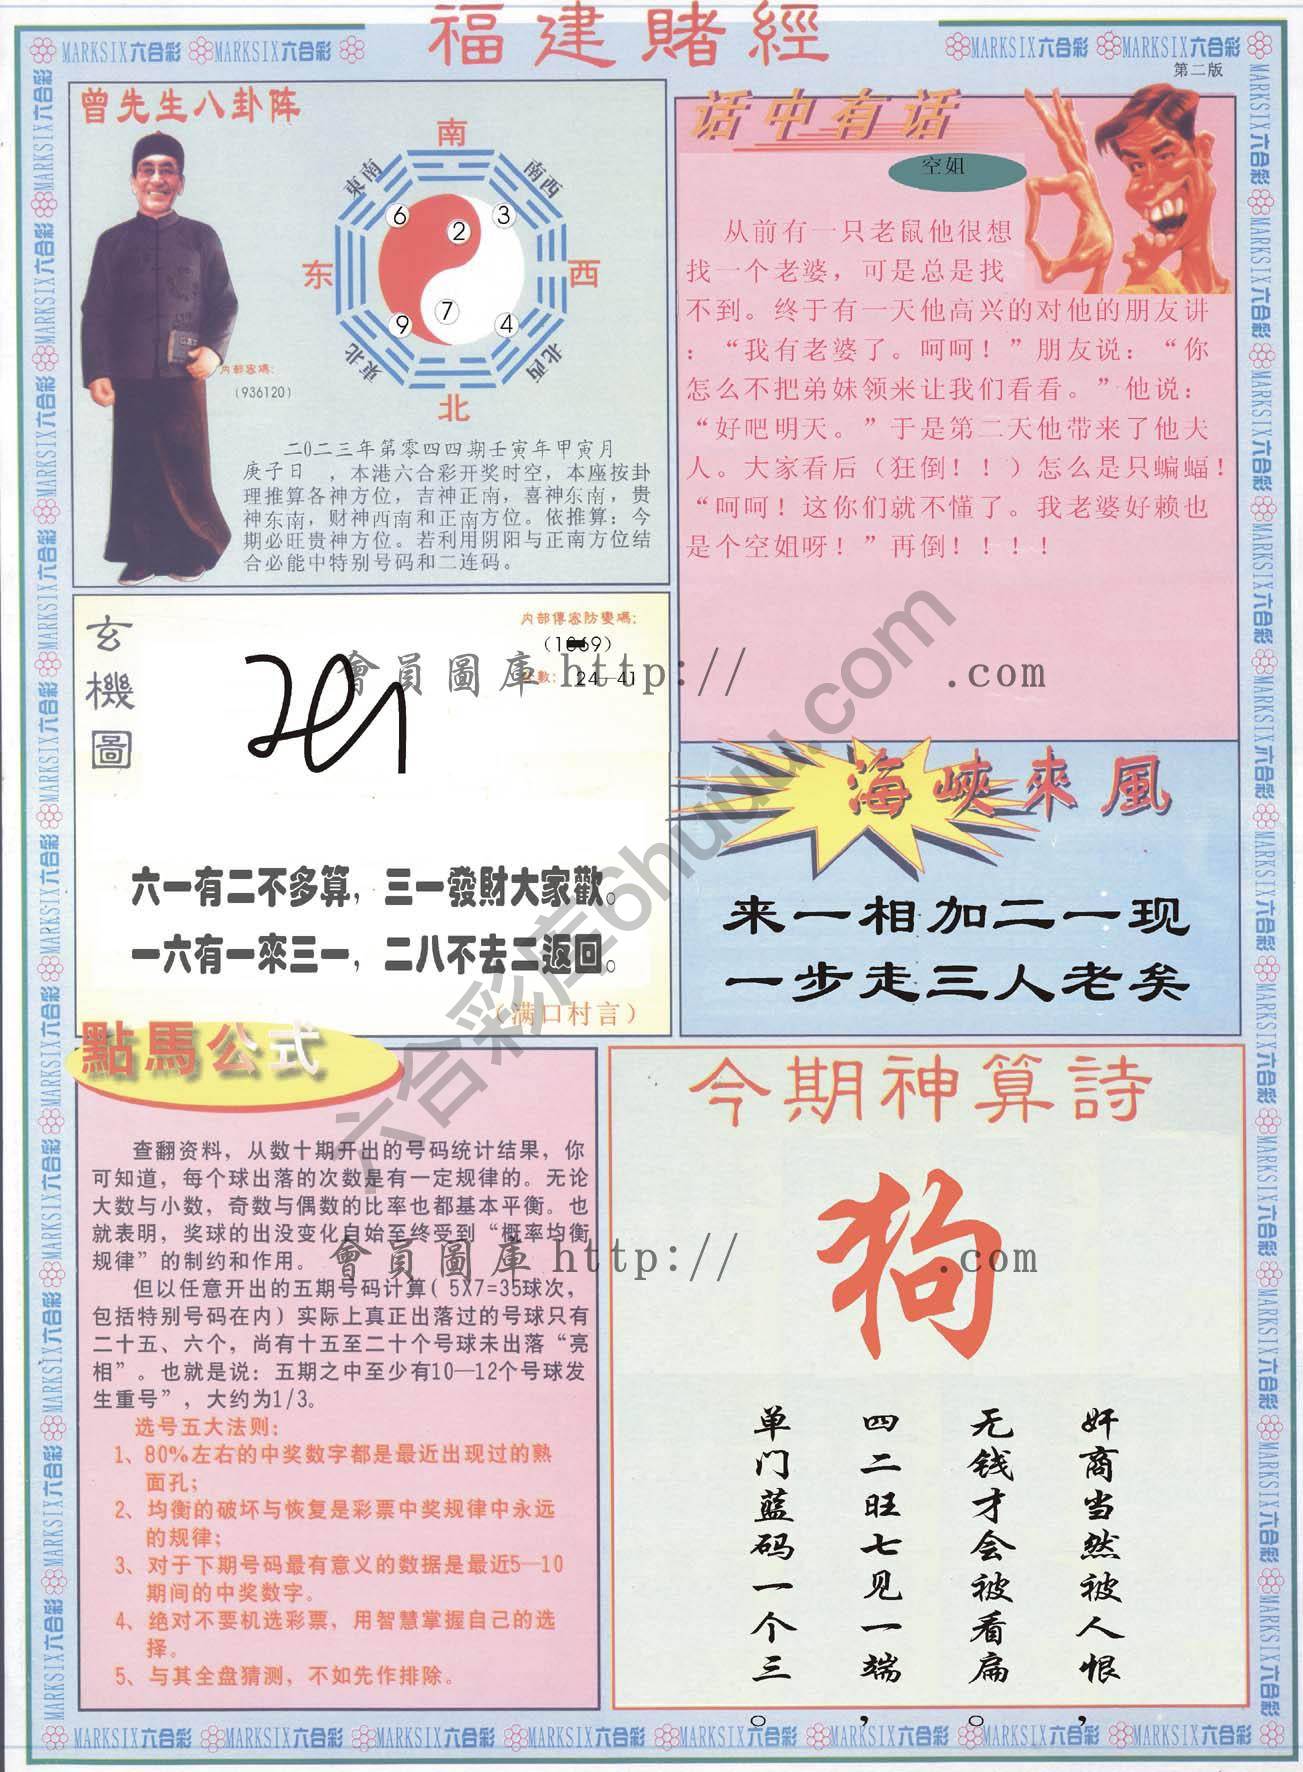 福建賭經
MARKSIX六合彩 MARKSIX六合彩
MARKSIX六合彩 MARKSIX六合彩
第二版
曾先生八卦阵
南
東南
南西
6
2
3
东
西
7
9
4
東北
北西
北
内部密碼：
（936120）
二0二三年第零四四期壬寅年甲寅月
庚子日 ，本港六合彩开奖时空，本座按卦
理推算各神方位，吉神正南，喜神东南，贵
神东南，财神西南和正南方位。依推算：今
期必旺贵神方位。若利用阴阳与正南方位结
合必能中特别号码和二连码。
话中有话
空姐
从前有一只老鼠他很想
找一个老婆，可是总是找
不到。终于有一天他高兴的对他的朋友讲
：“我有老婆了。呵呵！”朋友说：“你
怎么不把弟妹领来让我们看看。”他说：
“好吧明天。”于是第二天他带来了他夫
人。大家看后（狂倒！！）怎么是只蝙蝠！
“呵呵！这你们就不懂了。我老婆好赖也
是个空姐呀！”再倒！！！！
玄機圖
内部傳密防變碼：
24—41
會員圖庫 http:// .com
六一有二不多算，三一發財大家歡。
一六有一來三一，二八不去二返回。
（满口村言）
海峽來風
来一相加二一现
一步走三人老矣
點馬公式
查翻资料，从数十期开出的号码统计结果，你
可知道，每个球出落的次数是有一定规律的。无论
大数与小数，奇数与偶数的比率也都基本平衡。也
就表明，奖球的出没变化自始至终受到“概率均衡
规律”的制约和作用。
但以任意开出的五期号码计算( 5X7=35球次，
包括特别号码在内）实际上真正出落过的号球只有
二十五、六个，尚有十五至二十个号球未出落“亮
相”。也就是说：五期之中至少有10—12个号球发
生重号”，大约为1/3。
选号五大法则：
1、80%左右的中奖数字都是最近出现过的熟
面孔；
2、均衡的破坏与恢复是彩票中奖规律中永远
的规律；
3、对于下期号码最有意义的数据是最近5—10
期间的中奖数字。
4、绝对不要机选彩票，用智慧掌握自己的选
择。
5、与其全盘猜测，不如先作排除。
會員圖庫 http:// .com
今期神算詩
狗
奸商当然被人恨，
无钱才会被看扁。
四二旺七见一端，
单门蓝码一个三。
六合彩库6huuu.com
MARKSIX六合彩 MARKSIX六合彩 MARKSIX六合彩 MARKSIX六合彩 MARKSIX六合彩 MARKSIX六合彩 MARKSIX六合彩 MARKSIX六合彩